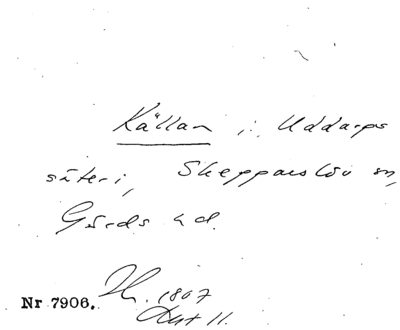 Källan i Uddarps
säteri, Skepparslöv sn,
Gärds hd.
Nr 7906.
1807